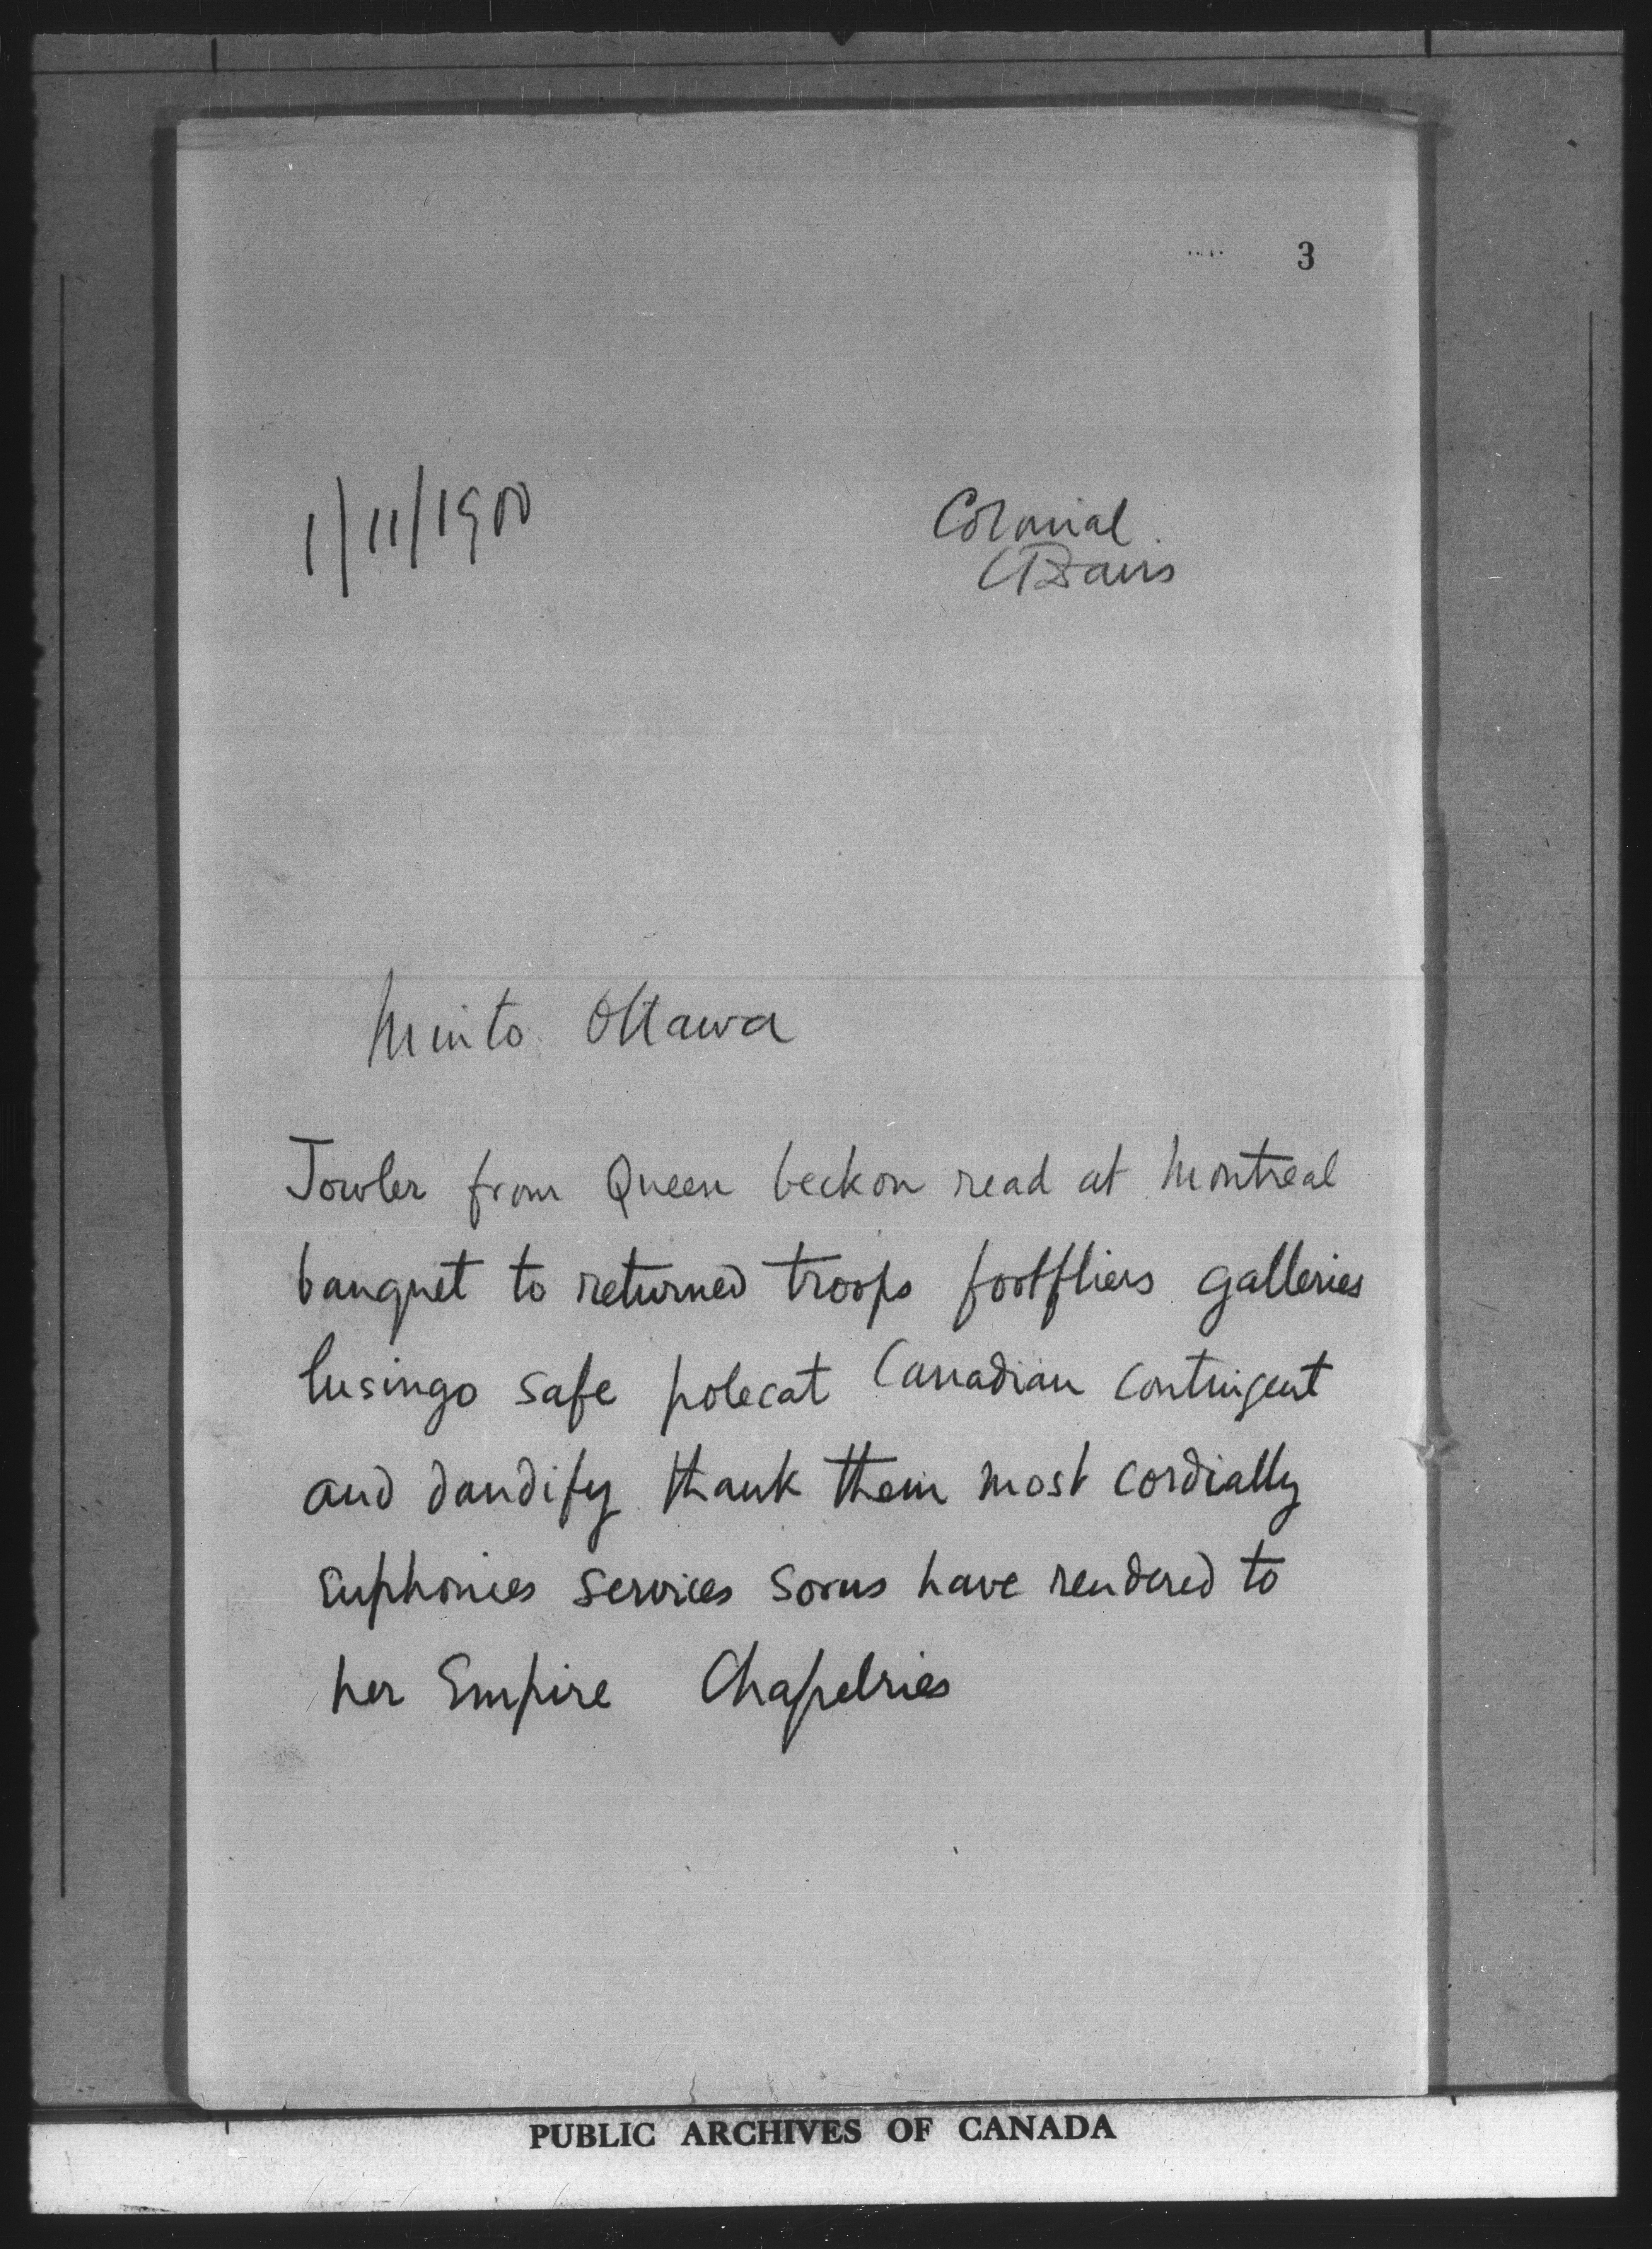 3
1/11/1900
Colonial
Minto Ottawa
Jowler from Queen beckon read at Montreal
banquet to returned troops footfliers galleries
lusingo safe polecat Canadian Contingent
and dandify thank them most cordially
euphonies services sorus have rendered to
her Empire Chapelries
PUBLIC ARCHIVES OF CANADA